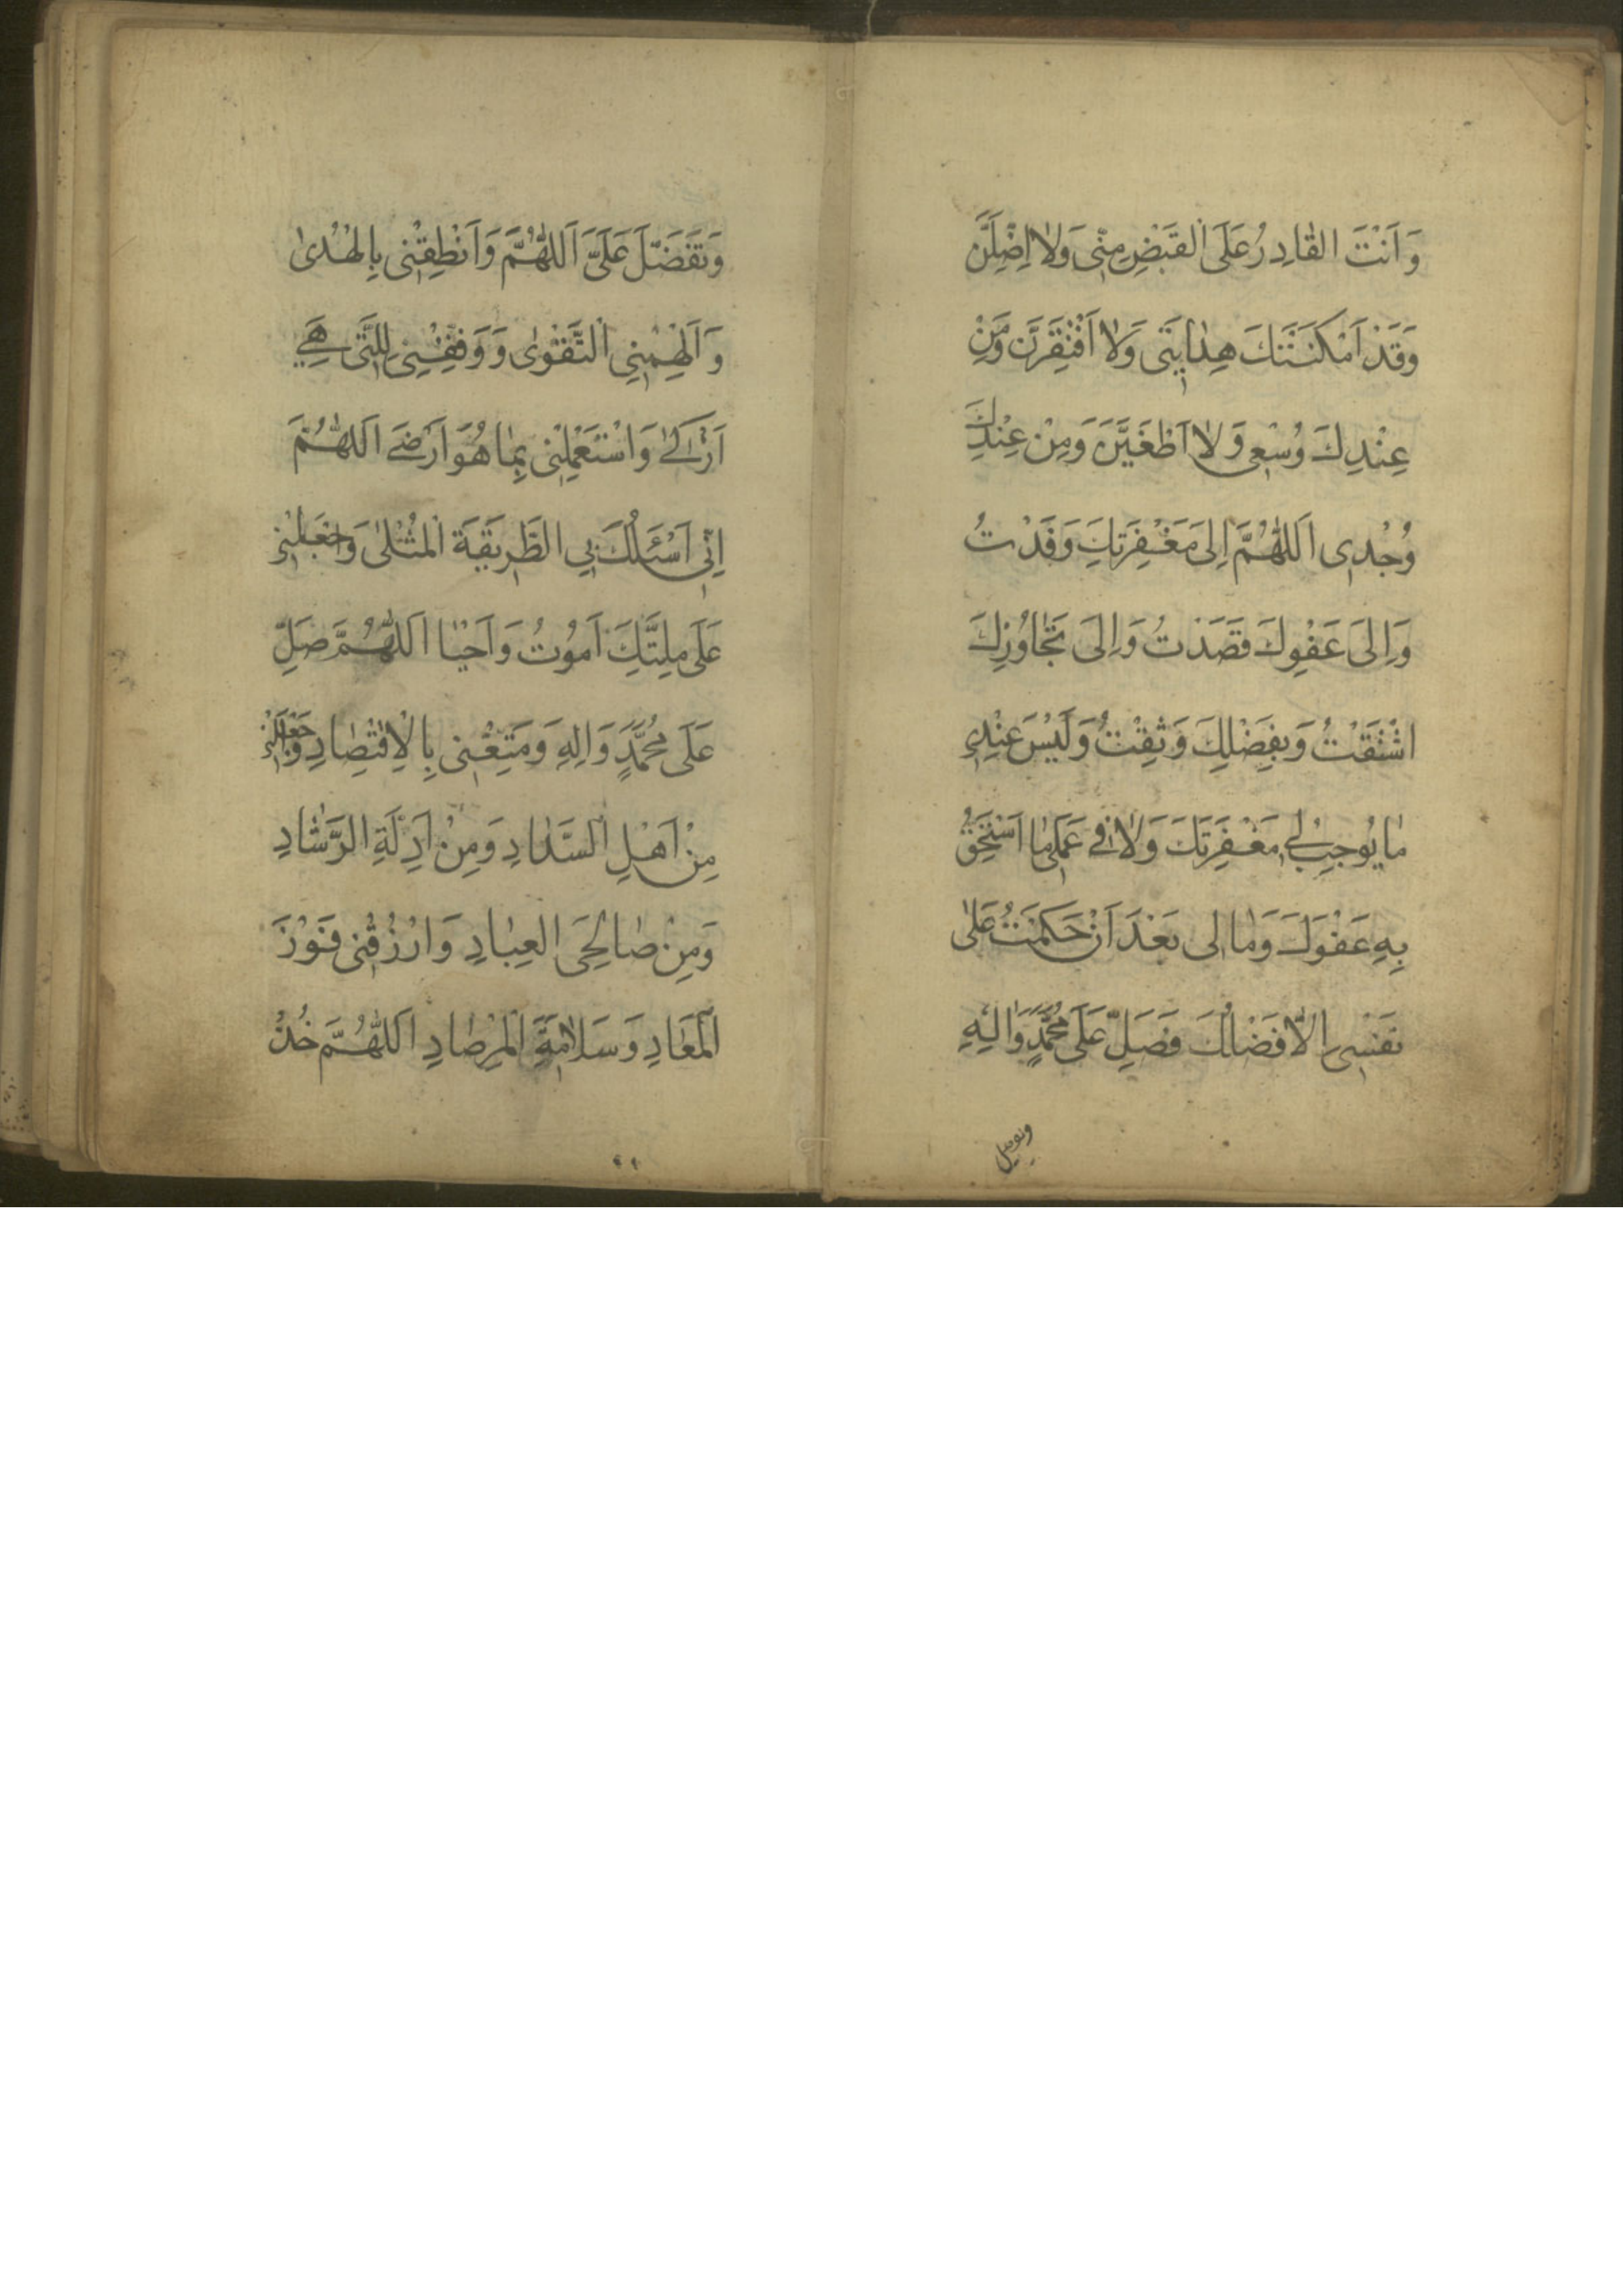 وَاَنْتَ القٰادِرُ عَلَى الْقَبْضِ مِنّٖى وَلٰا اَضِلَّنَّ
وَقَدْ اَمْكَنَتْكَ هِدٰايَتٖى وَلٰا اَفْتَقِرَنَّ وَمِنْ
عِنْدِكَ وُسْعٖى وَلٰا اَطْغَيَنَّ وَمِنْ عِنْدِكَ
وُجْدٖى اَللّٰهُمَّ اِلىٰ مَغْفِرَتِكَ وَفَدْتُ
وَاِلىٰ عَفْوِكَ قَصَدْتُ وَاِلىٰ تَجٰاوُزِكَ
اشْتَقْتُ وَبِفَضْلِكَ وَثِقْتُ وَلَيْسَ عِنْدٖى
مٰا يُوجِبُ لٖى مَغْفِرَتَكَ وَلٰا فٖى عَمَلٖى مٰا اَسْتَحِقُّ
بِهِ عَفْوَكَ وَمٰا لٖى بَعْدَ اَنْ حَكَمْتُ عَلىٰ
نَفْسٖى اِلّٰا فَضْلُكَ فَصَلِّ عَلىٰ مُحَمَّدٍ وَاٰلِهِ
وَتَفَضَّلْ عَلَىَّ اَللّٰهُمَّ وَاَنْطِقْنٖى بِالْهُدىٰ
وَاَلْهِمْنِى التَّقْوىٰ وَوَفِّقْنٖى لِلَّتٖى هِىَ
اَزْكىٰ وَاسْتَعْمِلْنٖى بِمٰا هُوَ اَرْضىٰ اَللّٰهُمَّ
اِنّٖى اَسْئَلُكَ بِى الطَّرٖيقَةَ الْمُثْلىٰ وَاجْعَلْنٖى
عَلىٰ مِلَّتِكَ اَمُوتُ وَاَحْيٰا اَللّٰهُمَّ صَلِّ
عَلىٰ مُحَمَّدٍ وَاٰلِهِ وَمَتِّعْنٖى بِالْاِقْتِصٰادِ وَاجْعَلْنٖى
مِنْ اَهْلِ السَّدٰادِ وَمِنْ اَدِلَّةِ الرَّشٰادِ
وَمِنْ صٰالِحِى الْعِبٰادِ وَارْزُقْنٖى فَوْزَ
الْمَعٰادِ وَسَلٰامَةَ الْمِرْصٰادِ اَللّٰهُمَّ خُذْ